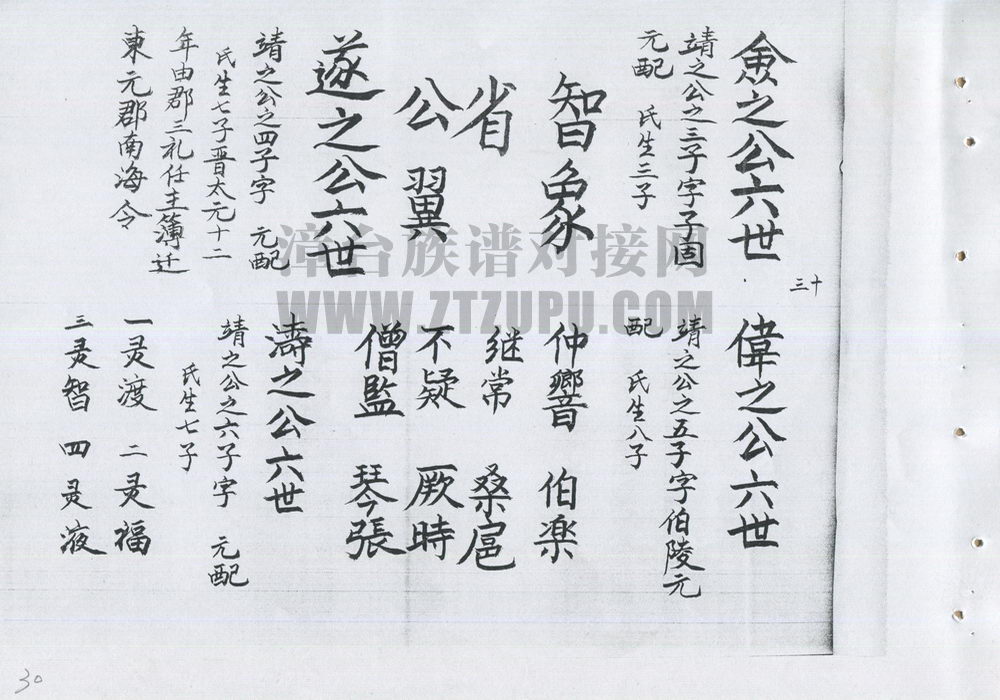 之公六世
靖之公之三子字子固
元配 氏生三子
智象
省
公翼
遂之公六世
靖之公之四子字 元配
氏生七子晋太元十二
年由郡三礼任主簿迁
東元郡南海令
十三
偉之公六世
靖之公之五子字伯陵元
配 氏生八子
仲響 伯楽
继常 桑扈
不疑 厥時
僧監 琴張
濤之公六世
靖之公之六子字 元配
氏生七子
一灵渡 二灵福
三灵智 四灵液
漳台族谱对接网
WWW.ZTZUPU.COM
30